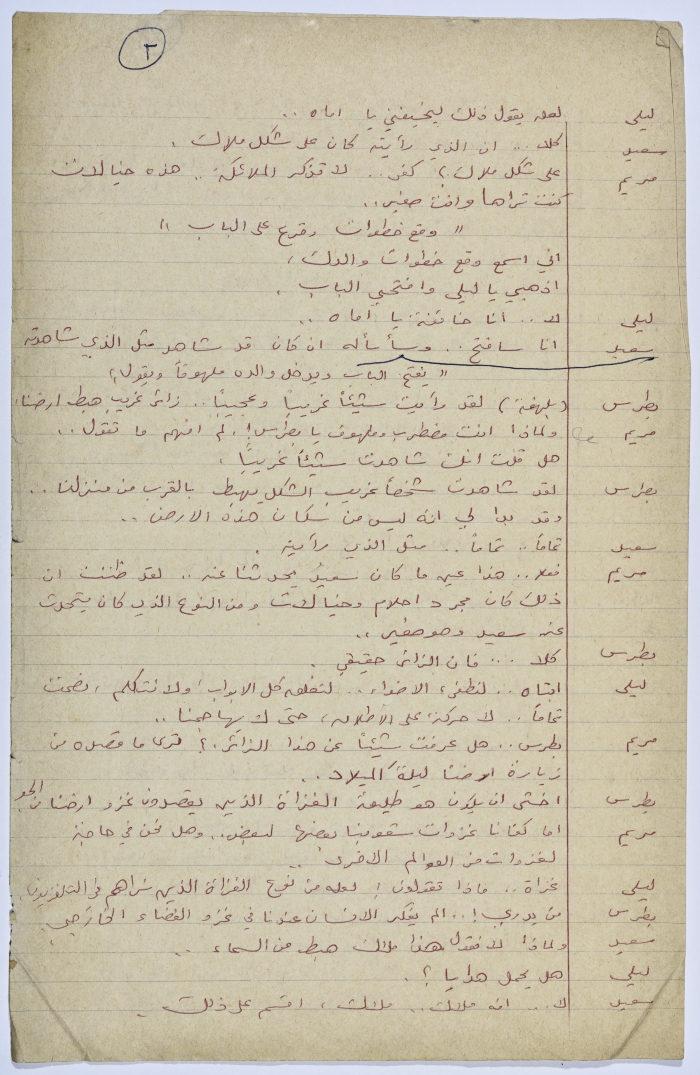 ٢
ليلى لعله يقول ذلك ليخيفني يا اماه ..
سعيد كلا .. ان الذي رأيته كان على شكل ملاك .
مريم على شكل ملاك ؟ كفى .. لا تذكر الملائكة .. هذه خيالات
كنت تراها وانت صغير ..
" وقع خطوات وقرع على الباب "
اني اسمع وقع خطوات والدك ،
اذهبي يا ليلى وافتحي الباب .
ليلى لا .. أنا خائفة يا أماه ..
سعيد أنا سافتح .. وسأسأله ان كان قد شاهد مثل الذي شاهدته
" يفتح الباب ويدخل والده ملهوفاً ويقول "
بطرس ( بلهفة ) لقد رأيت شيئاً غريباً وعجيباً .. زائر غريب هبط ارضنا
مريم ولماذا انت مضطرب وملهوف يا بطرس ! لم افهم ما تقول ..
هل قلت انك شاهدت شيئاً غريباً .
بطرس لقد شاهدت شخصاً غريب الشكل يهبط بالقرب من منزلنا ..
وقد بدا لي انه ليس من سكان هذه الارض ..
سعيد تماماً .. تماماً .. مثل الذي رأيته .
مريم فعلا .. هذا عين ما كان سعيد يحدثنا عنه .. لقد ظننت ان
ذلك كان مجرد احلام وخيالات ومن النوع الذي كان يتحدث
عنه سعيد وهو صغير ..
بطرس كلا ... فان الزائر حقيقي .
ليلى ابتاه .. لنطفىء الاضواء .. لنغلق كل الابواب ، ولا نتكلم ، نصمت
تماماً .. لا حركة على الاطلاق ، حتى لا يهاجمنا ..
مريم بطرس .. هل عرفت شيئاً عن هذا الزائر . ؟ ترى ما قصده من
زيارة ارضنا ليلة الميلاد ..
بطرس اخشى ان يكون هو طليعة الغزاة الذين يقصدون غزو ارضنا من الجو
مريم اما كفانا غزوات شعوبنا بعضها لبعض .. وهل نحن في حاجة
لغزوات من العوالم الاخرى ..
ليلى غزاة .. ماذا تقولون ! لعله من نوع الغزاة الذين نراهم في التلفزيون .
بطرس من يدري ! .. الم يفكر الانسان عندنا في غزو الفضاء الخارجي .
سعيد ولماذا لا نقول هذا ملاك هبط من السماء ..
ليلى هل يحمل هدايا ؟ .
سعيد لا .. انه ملاك .. ملاك ، اقسم على ذلك .